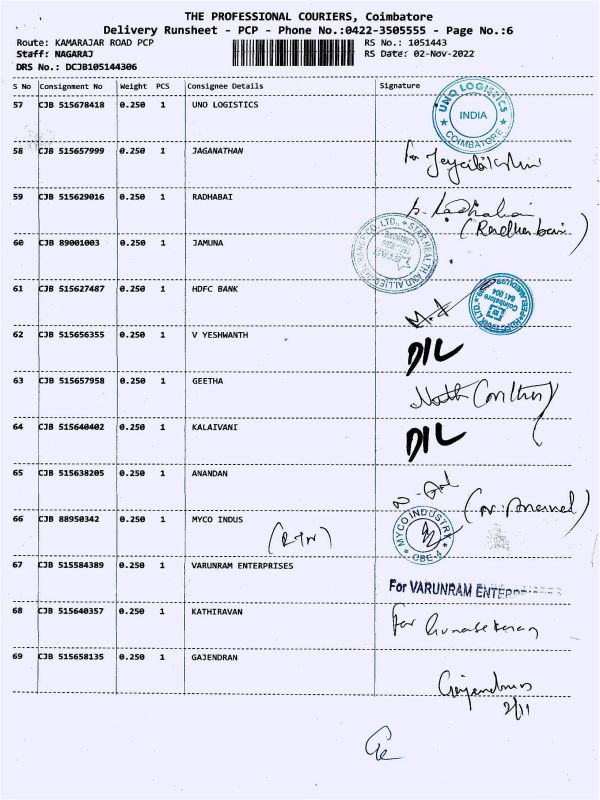 THE PROFESSIONAL COURIERS, Coimbatore
Delivery Runsheet - PCP - Phone No.:0422-3505555 - Page No.:6
Route: KAMARAJAR ROAD PCP RS No.: 1051443
Staff: NAGARAJ RS Date: 02-Nov-2022
DRS No.: DCJB105144306
S No Consignment No Weight PCS Consignee Details Signature
57 CJB 515678418 0.250 1 UNO LOGISTICS
UNO LOGISTICS
INDIA
COIMBATORE
58 CJB 515657999 0.250 1 JAGANATHAN
for
59 CJB 515629016 0.250 1 RADHABAI
60 CJB 89001003 0.250 1 JAMUNA
STAR HEALTH AND ALLIED
CO. LTD.
61 CJB 515627487 0.250 1 HDFC BANK
Coimbatore
641 004
62 CJB 515656355 0.250 1 V YESHWANTH
DIL
63 CJB 515657958 0.250 1 GEETHA
64 CJB 515640402 0.250 1 KALAIVANI
DIL
65 CJB 515638205 0.250 1 ANANDAN
66 CJB 88950342 0.250 1 MYCO INDUS
MYCO INDUSTRY
CBE-4
67 CJB 515584389 0.250 1 VARUNRAM ENTERPRISES
For VARUNRAM
68 CJB 515640357 0.250 1 KATHIRAVAN
for Gunasekaran
69 CJB 515658135 0.250 1 GAJENDRAN
Gajendran
2/11